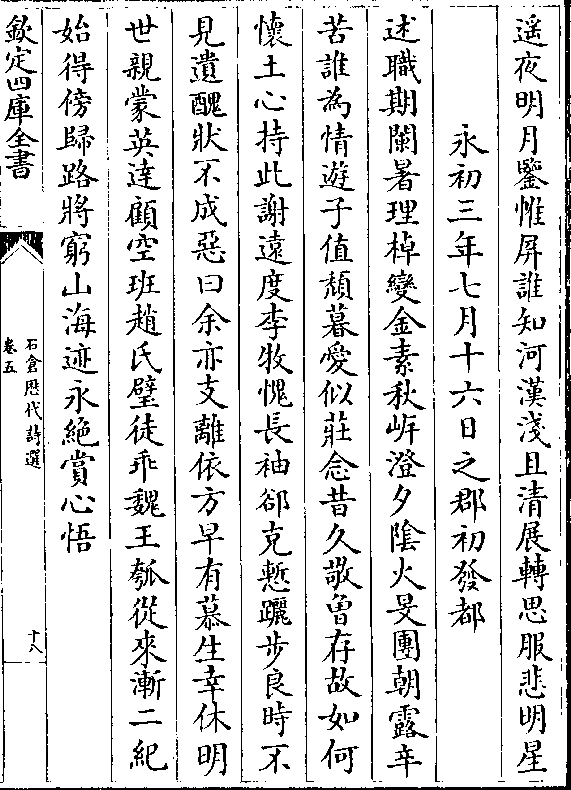 遥夜明月鑒帷屏誰知河漢淺且清展轉思服悲明星
永初三年七月十六日之郡初發都
述職期闌暑理棹變金素秋岍澄夕陰火旻團朝露辛
苦誰為情遊子值頽暮愛似莊念昔久敬曽存故如何
懷土心持此謝遠度李牧愧長袖郤克慙躧步良時不
見遺醜狀不成惡曰余亦支離依方早有慕生幸休明
世親蒙英達顧空班趙氏璧徒乖魏王瓠從來漸二紀
始得傍歸路將窮山海迹永絶賞心悟
欽定四庫全書
石倉歴代詩選
卷五
十八